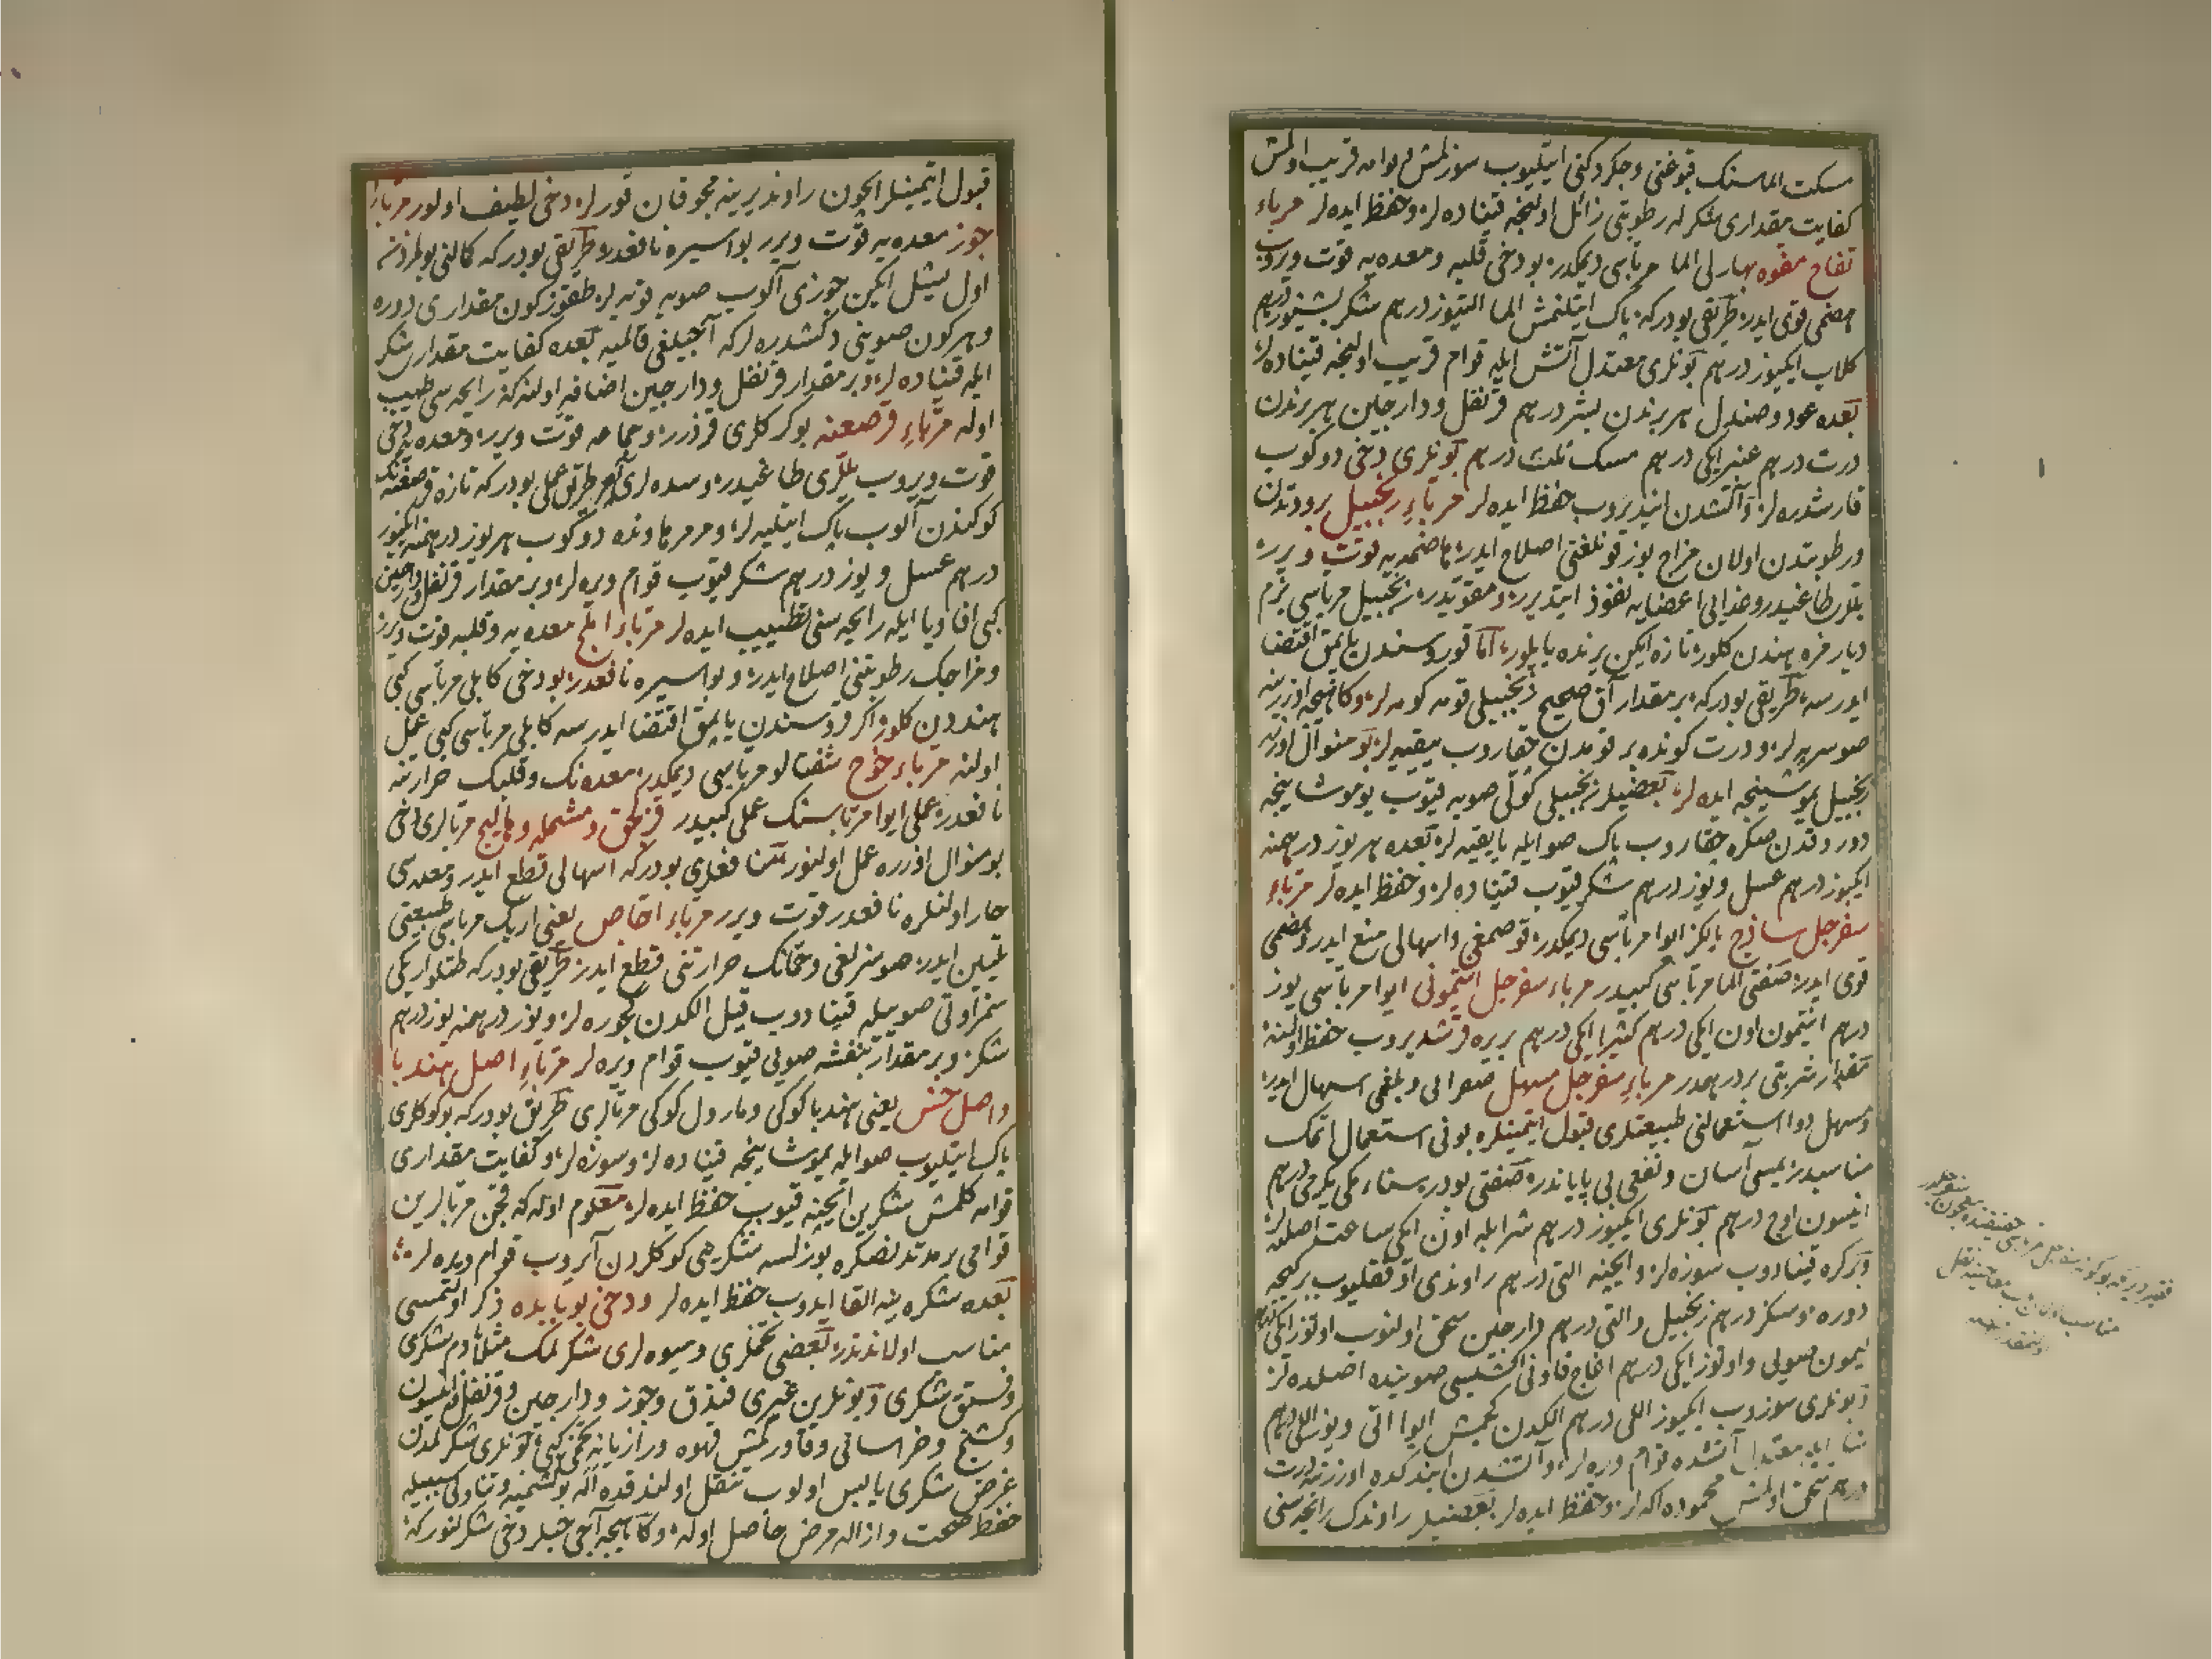 مسكت الماسنك قبوغنی وجكردكنی ایتلیوب سوزلمش قوامه قریب اولمش
كفایت مقداری شكرله رطوبتی زائل اولنجه قیناده لر وحفظ ایده لر مرباء
تفاح مفوه بهارلی الما مرباسی دیمكدر بودخی قلبه ومعده یه قوت ویروب
هضمی قوی ایدر طریقی بودركه پاك ایتلنمش الما التیوز درهم شكر بشیوز درهم
كلاب ایكیوز درهم بونلری معتدل آتش ایله قوام قریب اولنجه قیناده لر
بعده عود وصندل هر برندن بشر درهم قرنفل ودارچین هر برندن
درت درهم عنبر ایكی درهم مسك ثلث درهم بونلری دخی دوكوب
قارشدره لر وآتشدن ایندیروب حفظ ایده لر مرباء زنجبیل برودتدن
ورطوبتدن اولان مزاج بوزقونلغنی اصلاح ایدر هاضمه یه قوت ویرر
یللری طاغیدر وغدایی اعضایه نفوذ ایتدیرر ومقویدر زنجبیل مرباسی بزم
دیارمزه هندن كلور تازه ایكن یرنده یاپلور اما قوروسندن یاپمق اقتضا
ایدرسه طریقی بودركه بر مقدار آق صحیح زنجبیلی قومه كومه لر وكاهیجه اوزرینه
صو سپه لر ودرت كونده بر قومدن چقاروب ییقیه لر بو منوال اوزره
زنجبیل یموشینجه ایده لر بعضیلر زنجبیلی كوللی صویه قیوب یوموشاینجه
دوردقدن صكره چقاروب پاك صو ایله یایقیه لر بعده هر یوز درهمنه
ایكیوز درهم عسل ویوز درهم شكر قیوب قیناده لر وحفظ ایده لر مرباء
سفرجل ساذج یالكز ایوا مرباسی دیمكدر قوصمغی واسهالی منع ایدر وهضمی
قوی ایدر صفتی الما مرباسی كبیدر مرباء سفرجل افتیمونی ایوا مرباسی یوز
درهم افتیمون اون ایكی درهم كثیرا ایكی درهم بربره قرشدیروب حفظ اولنه
مقدار شربتی بر درهمدر مرباء سفرجل مسهل صفرایی وبلغمی اسهال ایدر
ومسهل دوا استعمالنی طبیعتلری قبول ایتمینلره بونی استعمال ایتمك
مناسبدر یمسی آسان ونفعی بی پایاندر صفتی بودر سناء مكی یكرمی درهم
انیسون اوچ درهم بونلری ایكیوز درهم شرابله اون ایكی ساعت اصلده لر
وبركره قینادوب سوزه لر وایچینه التی درهم راوندی اوفقلیوب بركیجه
دوره وسكز درهم زنجبیل والتی درهم دارچین سحق اولنوب اوتوز ایكی درهم
لیمون صویی واوتوز ایكی درهم اغاج قاونی اكشیسی صوینده اصلده لر
وبونلری سوزوب ایكیوز اللی درهم الكدن كچمش ایوا اتی ویوز اللی درهم
ایله معتدل آتشده قوام ویره لر وآتشدن ایندكده اوزرینه درت
درهم سحق اولنمش محموده اكه لر وحفظ ایده لر بعضیلر راوندك رایحه سنی
مناسب
قبول ایتمینلر ایچون راوند یرینه مچوقان قورلر دخی لطیف اولور مرباء
جوز معده یه قوت ویرر بواسیره نافعدر طریقی بودركه
اول یشل ایكن جوزی آلوب صویه قویه لر طقوز كون مقداری دوره
وهركون صوینی دكشدیره لر كه آجیلغی قالمیه بعده كفایت مقداری شكر
ایله قیناده لر وبر مقدار قرنفل ودارچین اضافه اولنه كه رایحه سی طیب
اوله مرباء قرصعنه بوكركلری قزدرر وجماعه قوت ویرر ومعده یه دخی
قوت ویروب یللری طاغیدر وسده لری آچر طریق عمل بودركه تازه قرصعنه نك
كوكندن آلوب پاك ایتلیه لر ومرمر هاونده دوكوب هر یوز درهمنه ایكیوز
درهم عسل ویوز درهم شكر قیوب قوام ویره لر وبر مقدار قرنفل ودارچین
كبی افاویا ایله رایحه سنی تطییب ایده لر مرباء املج معده یه وقلبه قوت ویرر
ومزاجك رطوبتنی اصلاح ایدر وبواسیره نافعدر بودخی كابلی مرباسی كبی
هنددن كلور اكر قوروسندن یاپمق اقتضا ایدرسه كابلی مرباسی كبی عمل
اولنه مرباء خوخ شفتالو مرباسی دیمكدر معده نك وقلبك حرارتنه
نافعدر عملی ایوا مرباسنك عملی كبیدر قزلجق ومشمله وهالیج مربالری دخی
بو منوال اوزره عمل اولنور منافعلری بودركه اسهالی قطع ایدر ومعده سی
حار اولنلره نافعدر قوت ویرر مرباء اجاص یعنی اریك مرباسی طبیعتی
تلیین ایدر صوسزلغی وحمانك حرارتنی قطع ایدر طریقی بودركه طتلو اریكی
سمزاوتی صوییله قینادوب قیل الكدن كچوره لر ویوز درهمنه یوز درهم
شكر وبر مقدار بنفشه صویی قیوب قوام ویره لر مرباء اصل هندبا
واصل خس یعنی هندبا كوكی ومارول كوكی مربالری طریق بودركه بو كوكلری
پاك ایتلیوب صو ایله یموشاینجه قیناده لر وسوزه لر وكفایت مقداری
قوامه كلمش شكرین ایچینه قیوب حفظ ایده لر معلوم اوله كه قچن مربالرین
قوامی بر مدتدنصكره بوزلسه شكرینی كوكلردن آیروب قوام ویره لر
بعده شكره ینه القا ایدوب حفظ ایده لر ودخی بو بابده ذكر اولنمسی
مناسب اولاندندر بعضی تخملری ومیوه لری شكرلمك مثلا بادم شكری
وفستق شكری وبونلرین غیری فندق وجوز ودارچین وقرنفل وانیسون
وكشنج وخراسانی وقاورلمش قهوه ورازیانه تخمی كبی بونلری شكرلمدن
غرض شكری یابس اولوب تنقل اولندقده اله بولشمیه وتناولی سببیله
حفظ صحت وازاله مرض حاصل اوله وكاهیجه آجی حبلر دخی شكرلنور كه